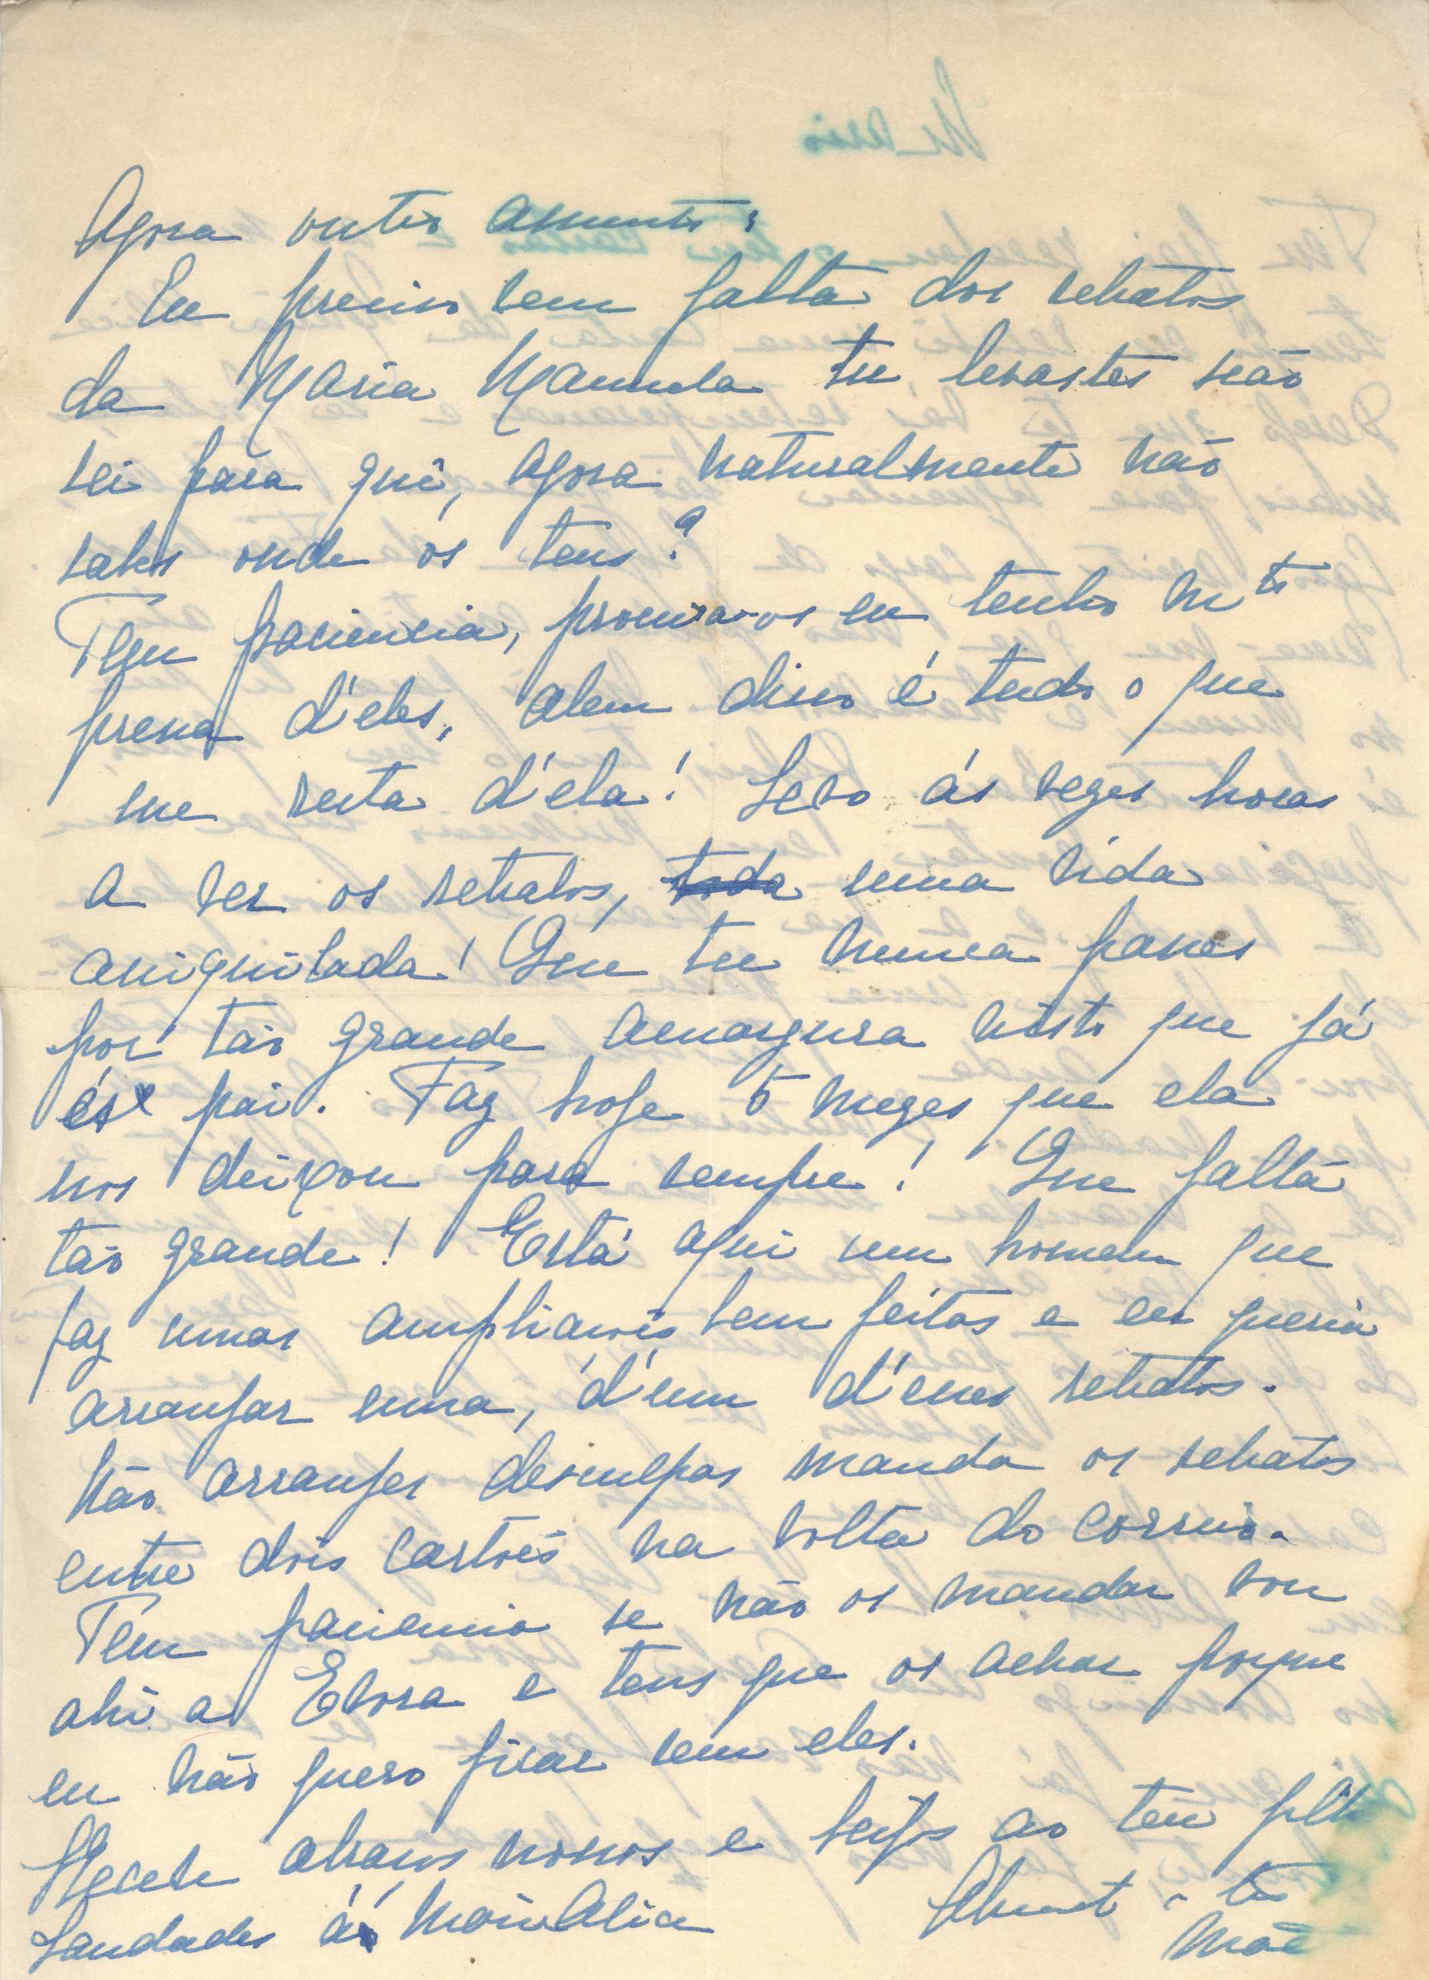 Agora outro assunto:
Eu preciso sem falta dos retratos
da Maria Manuela tu levastes não
sei para quê, agora naturalmente não
sabes onde os tens?
Tem paciencia, procura-os eu tenho mta
pena d'eles, alem disso é tudo o que
me resta d'ela! Levo ás vezes horas
a ver os retratos, toda uma vida
aniquilada! Que tu nunca passes
por tão grande amargura visto que já
és pai. Faz hoje 5 mezes que ela
nos deixou para sempre! Que falta
tão grande! Está aqui um homem que
faz umas ampliaçoẽs bem feitas e eu queria
arranjar uma, d'um d'esses retratos.
Não arranjes desculpas manda os retratos
entre dois cartoẽs na volta do correio.
Tem paciencia se não os mandar vou
ahi a Evora e tens que os achar porque
eu não quero ficar sem eles.
Recebe abraços nossos e beijos ao teu filho
Saudades á Maria Alice
Mãe